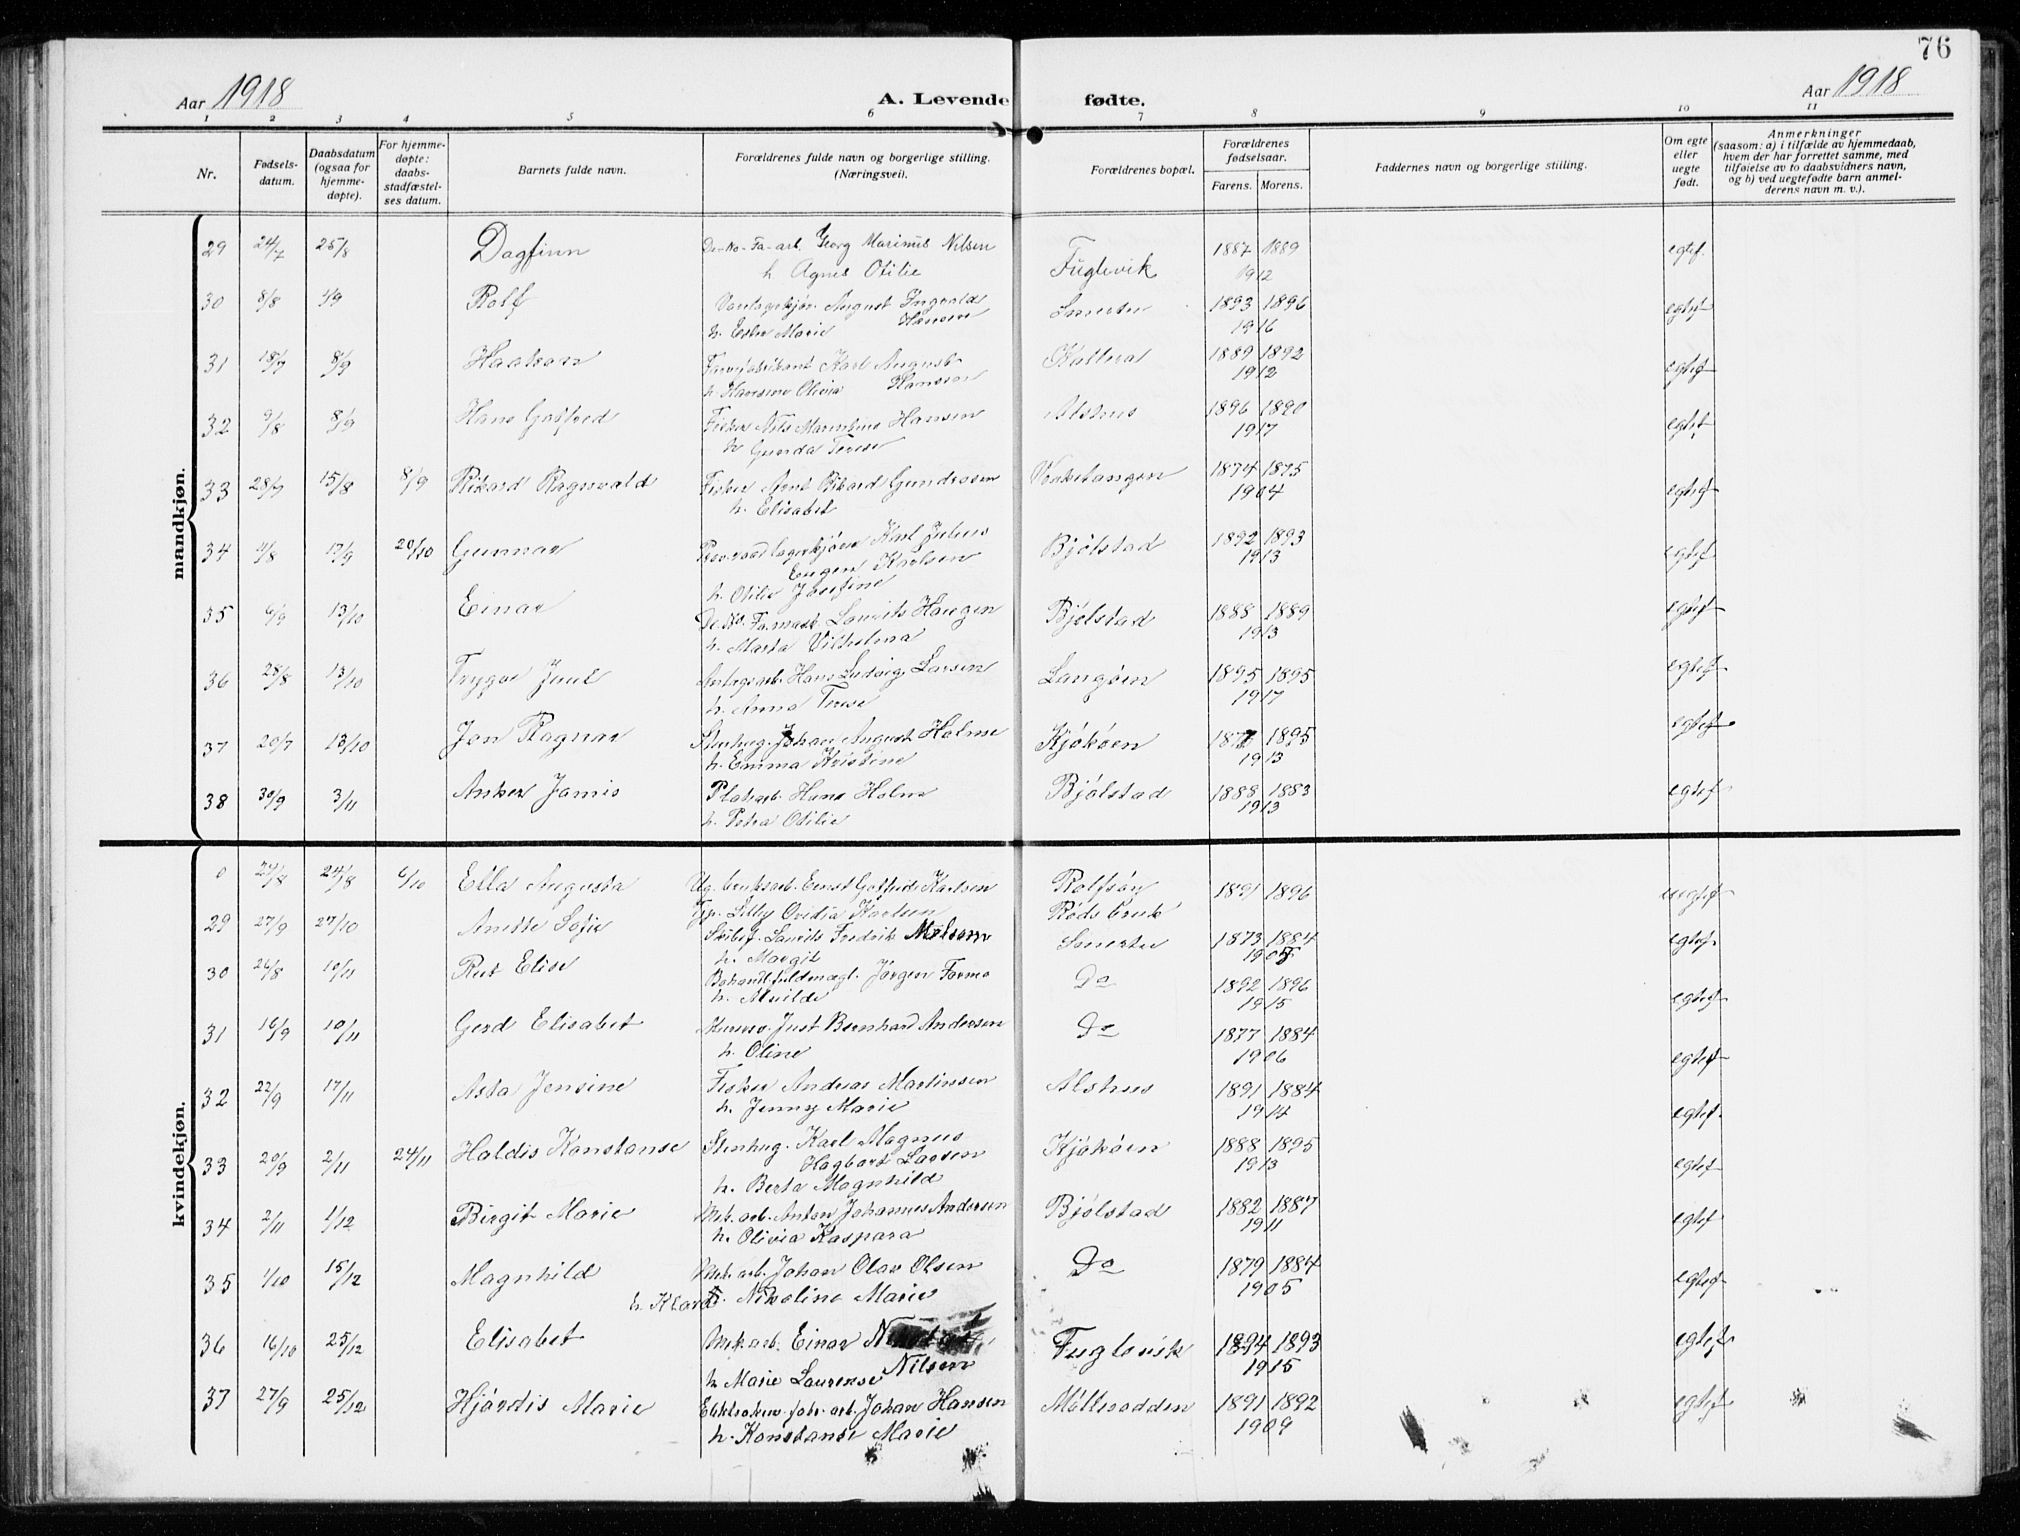 76
Aar 1918
A. Levende fødte.
Aar 1918
1 2 3 4 5 6 7 8 9 10 11
Nr.
Fødsels-
datum.
Daabsdatum
(ogsaa for
hjemme-
døpte).
For hjemme-
døpte:
daabs-
stadfæstel-
ses datum.
Barnets fulde navn.
Forældrenes fulde navn og borgerlige stilling.
(Næringsvei).
Forældrenes bopæl.
Forældrenes
fødselsaar.
Farens. Morens.
Faddernes navn og borgerlige stilling.
Om egte
eller
uegte
født.
Anmerkninger
(saasom: a) i tilfælde av hjemmedaab,
hvem der har forrettet samme, med
tilføielse av to daabsvidners navn,
og b) ved uegtefødte barn anmel-
derens navn m. v.).
mandkjøn.
29 24/7 25/8 Dagfinn De-No-Fa-arb. Georg Marinus Nilsen Fuglevik 1887 1889 egtef.
h. Agnes Otilie 1912
30 8/8 1/9 Rolf August Ingvald 1893 1896 egtef
h. Ester Marie Hansen 1916
31 18/7 8/9 Haakon Karl August 1889 1892 egtef
Olivia Hansen 1912
32 9/8 8/9 Hans Fisker Nils Hansen Alshus 1896 1890 egtef
h. Gunda Terese 1917
33 28/7 15/8 8/9 Rikard Ragnvald Fisker Arnt Rikard Gundersen 1874 1875 egtef
h. Elisabet 1904
34 4/8 17/9 20/10 Gunnar Karl Julius Bjølstad 1892 1893 egtef
Eugen Karlsen 1913
h. Otilie Josefine
35 6/9 13/10 Einar De.No. Fa.mask. Laurits Haugen Bjølstad 1888 1889 egtef
h. Marta Vilhelmina 1913
36 28/8 13/10 Trygve Juul Hans Ludvig Larsen Langøen 1895 1895 egtef
h. Anna Terese 1917
37 20/7 13/10 Jon Ragnar Stenhug. Johan August Holme Kjøkøen 1895 egtef
h. Emma Kristine 1913
38 30/9 3/11 Anker Jamis Platearb. Hans Holm Bjølstad 1888 1883 egtef
h. Petra Otilie 1913
kvindekjøn.
0 24/8 24/8 6/10 Ella Augusta Ug. bruksarb. Ernst Karlsen Rolfsøn 1891 1896 uegtef
Lilly Ovidia Karlsen Røds bruk
29 27/9 27/10 Anette Sofie Skibsf. Laurits Fredrik 1873 1884 egtef.
h. Margit
30 26/8 10/11 Rut Elise Jørgen Formo Do 1892 1896 egtef
1915
31 16/9 10/11 Gerd Elisabet Just Bernhard Andersen Do 1877 1884 egtef
h. Oline 1906
32 22/9 17/11 Asta Jensine Fisker Andreas Martinsen Alshus 1891 1884 egtef.
h. Jenny Marie 1914
33 20/9 2/11 24/11 Haldis Konstanse Stenhug. Karl Magnus Kjøkøen 1888 1895 egtef
Hagbart Larsen 1913
h. Berta Magnhild
34 2/11 1/12 Birgit Marie Mek. arb. Anton Johannes Andersen Bjølstad 1882 1887 egtef
h. Olivia Kaspara 1911
35 1/10 15/12 Magnhild Mek. arb. Johan Olav Olsen Do 1879 1884 egtef
h. Klara Nikoline Marie 1905
36 16/10 25/12 Elisabet Mek arb. Einar Fuglevik 1894 1893 egtef
h Marie Laurense Nilsen 1915
37 27/9 25/12 Hjørdis Marie Johan Hansen Mølterodden 1891 1892 egtef
h. Konstanse Marie 1909